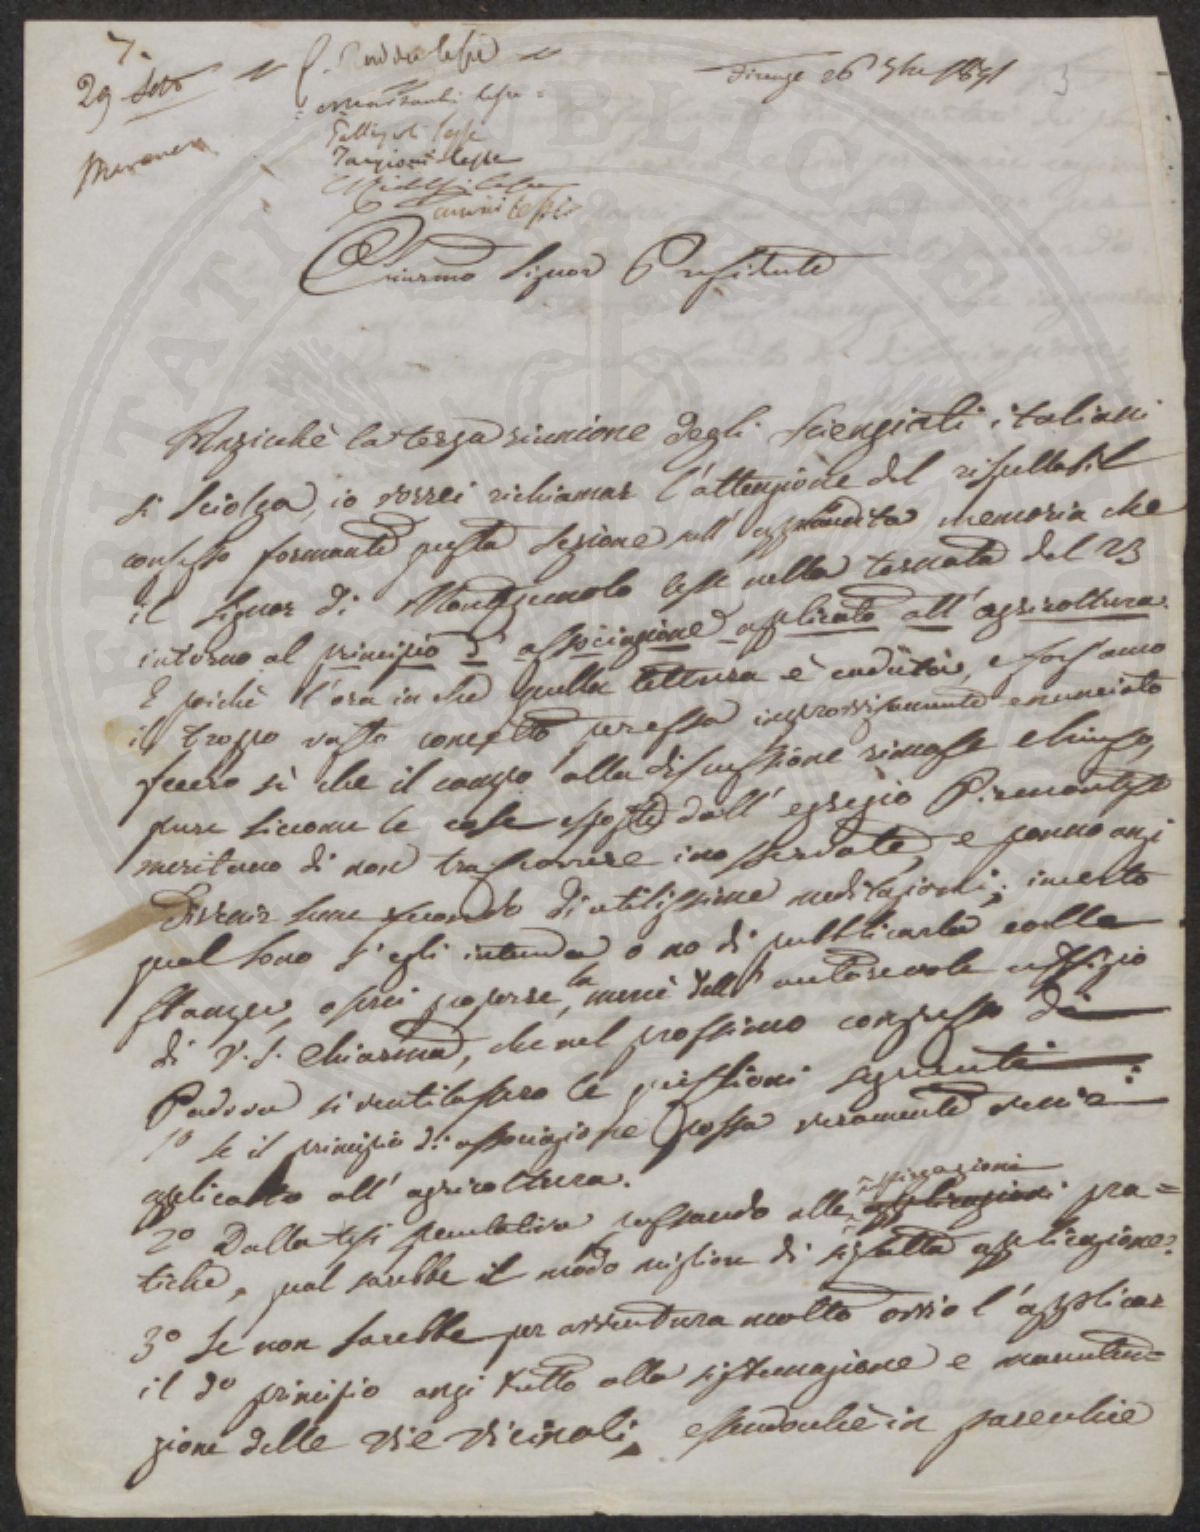 7.
29 Sett.
Firenze 26 7bre 1841
3
lesse
lesse
lesse
Targioni lesse
lesse
Chiarmo Signor Presidente
Anzichè la terza riunione degli Scienziati italiani
si sciolga, io vorrei richiamar l'attenzione del rispettabil
consesso formante questa sezione sull' applaudita memoria che
il Signor di Montezemolo lesse nella tornata del 23
intorno al principio d'associazione applicato all'agricoltura.
E poichè l'ora in che quella lettura è caduta, e fors'anco
il troppo vasto concetto per essa improvvisamente enunciato
fecero sì che il campo alla discussione rimase chiuso,
pure siccome le cose esposte dall' egregio Piemontese
meritano di non trascorrere inosservate, e ponno anzi
divenir seme fecondo di utilissime meditazioni; incerto
qual sono s'egli intenda o no di pubblicarla colle
stampe, oserei proporre, la mercè dell' autorevole uffizio
di V. S. Chiarma, che nel prossimo congresso di
Padova si ventilassero le quistioni seguenti
1o Se il principio di associazione possa veramente venir
applicato all' agricoltura.
2o Dalla tesi speculativa passando alle applicazioni pra=
tiche, qual sarebbe il modo migliore di siffatta applicazione.
3o Se non sarebbe per avventura molto ovvio l'applicar
il do principio anzi tutto alla sistemazione e manuten=
zione delle vie vicinali, essendochè in parecchie